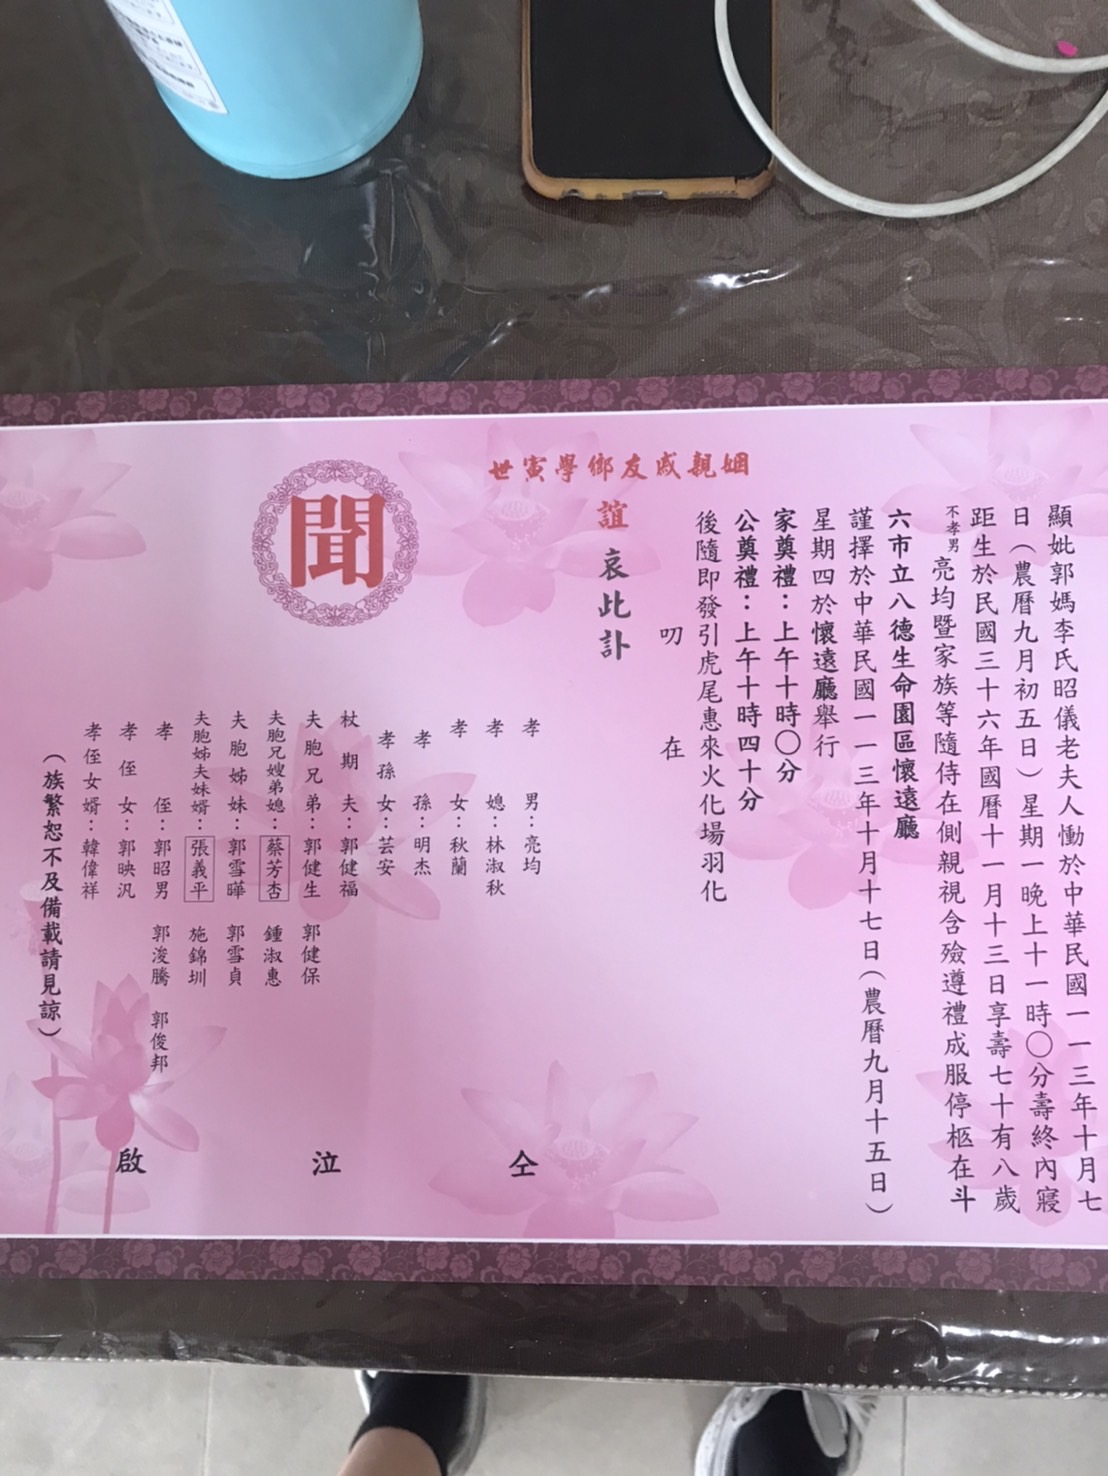 顯妣郭媽李氏昭儀老夫人慟於中華民國一一三年十月七
日（農曆九月初五日）星期一晚上十一時〇分壽終內寢
距生於民國三十六年國曆十一月十三日享壽七十有八歲
不孝男亮均暨家族等隨侍在側親視含殮遵禮成服停柩在斗
六市立八德生命園區懷遠廳
謹擇於中華民國一一三年十月十七日（農曆九月十五日）
星期四於懷遠廳舉行
家奠禮：上午十時〇分
公奠禮：上午十時四十分
後隨即發引虎尾惠來火化場羽化
叨 在
姻親戚友鄉學寅世
誼哀此訃
聞
孝男：亮均
孝媳：林淑秋
孝女：秋蘭
孝孫：明杰
孝孫女：芸安
杖期夫：郭健福
夫胞兄弟：郭健生 郭健保
夫胞兄嫂弟媳：蔡芳杏 鍾淑惠
夫胞姊妹：郭雪曄 郭雪貞
夫胞姊夫妹婿：張義平 施錦圳
孝侄：郭昭男 郭浚騰 郭俊邦
孝侄女：郭映汎
孝侄女婿：韓偉祥
（族繁恕不及備載請見諒）
仝 泣 啟